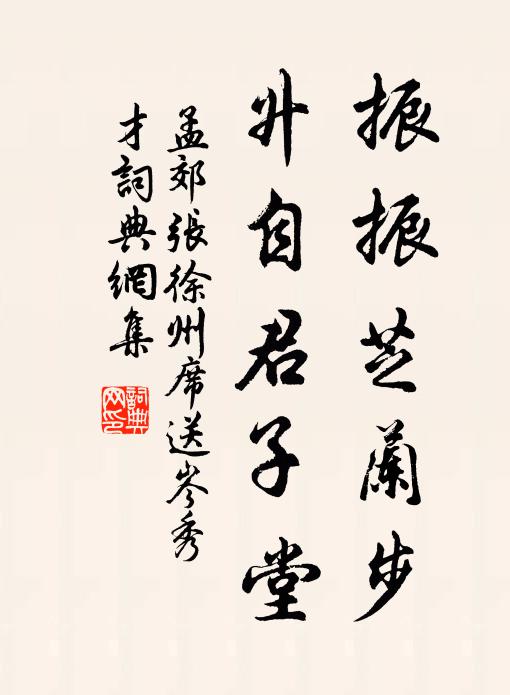 振振芝蘭步
升自君子堂
孟郊張徐州席送岑秀
才詞典網集
詞典
网印